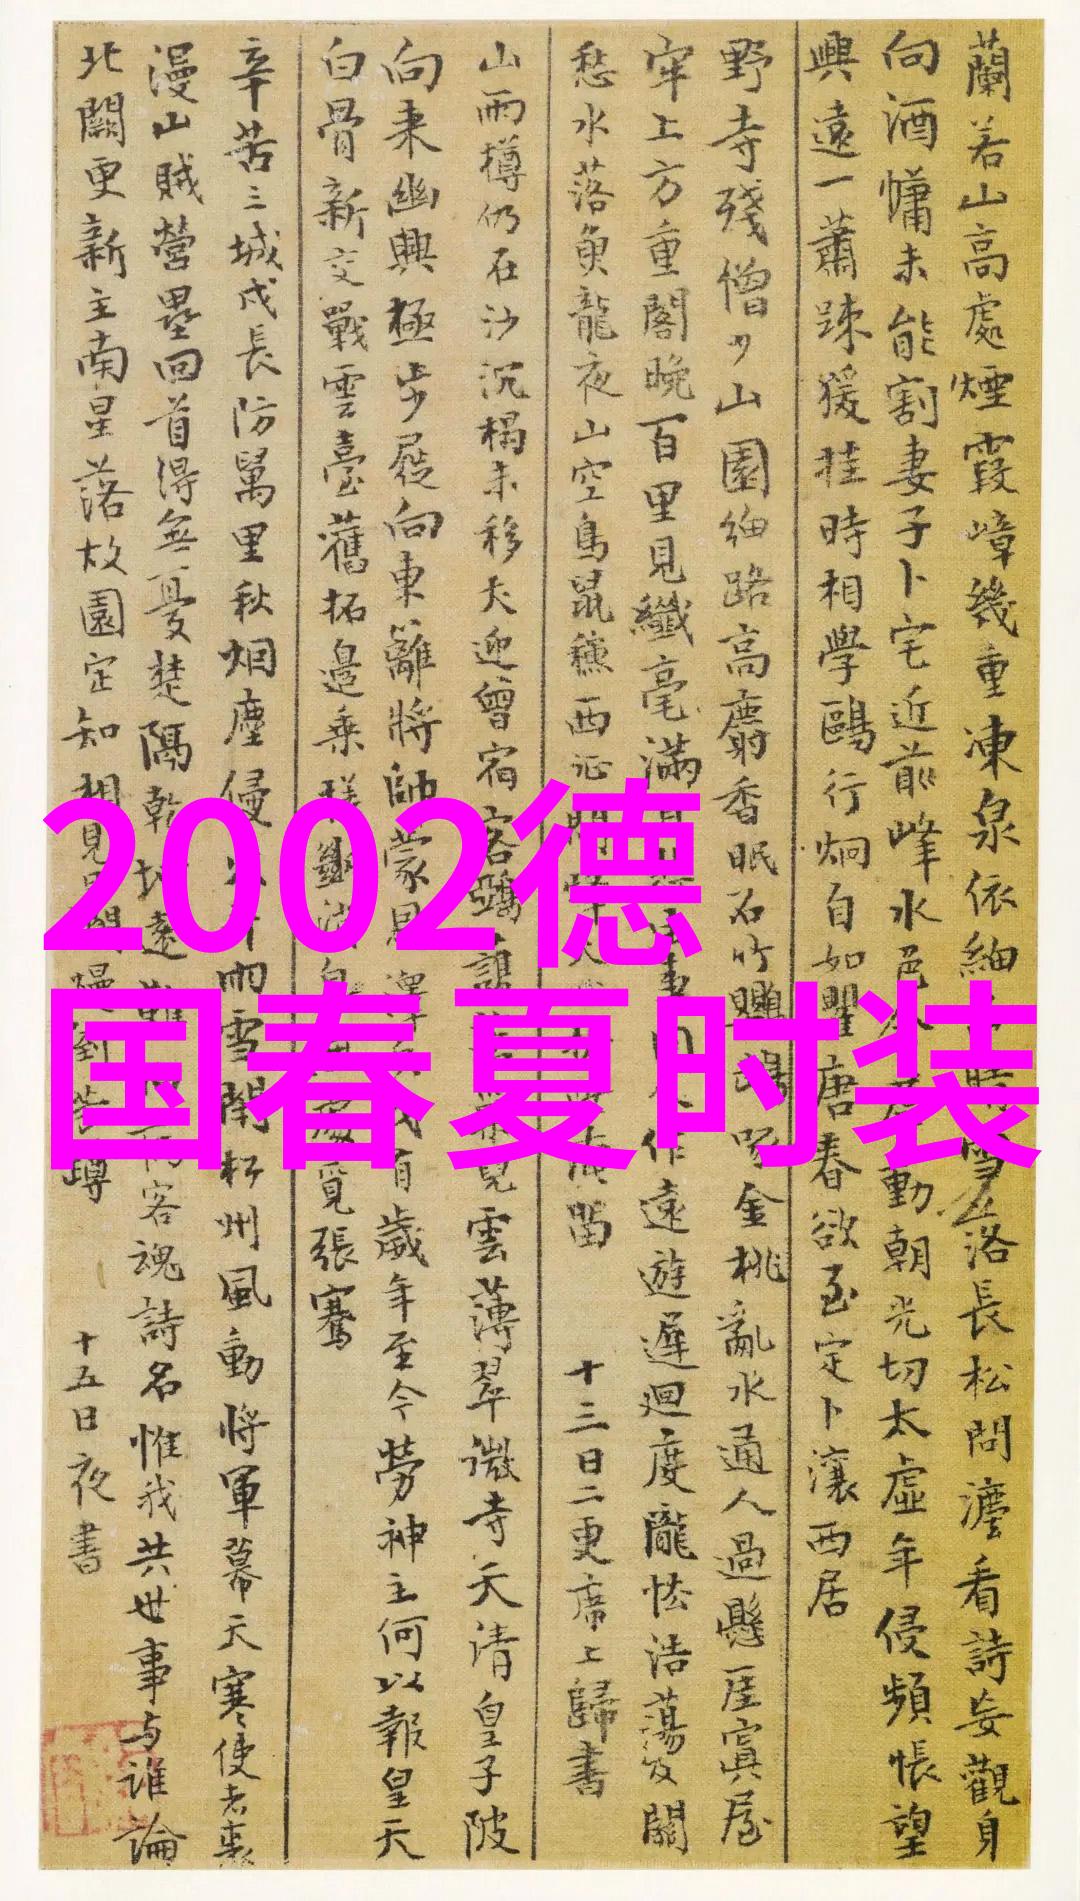 蘭若山高處煙霞嶂幾重凍泉依細
落長松問灋看詩妄觀身
向酒慵未能割妻子卜宅近前峰水色
動朝光切太虛年侵頻悵望
興遠一蕭踈猨挂時相學鷗行炯自如瞿唐春欲至定卜瀼西居
野寺殘僧少山園細路高麝香眠石竹
金桃亂水通人過懸崖寘屋
牢上方重閣晚百里見纖毫滿
作遠遊遲迴度隴怯浩蕩及關
愁水落魚龍夜山空鳥鼠穐西
留 十三日二更席上歸書
山雨樽仍在沙沉榻未移犬迎曾宿客
見雲薄翠微寺天清皇子陂
向来幽興極步屧向東籬將帥蒙恩
有歲年至今勞神主何以報皇天
白骨新交戰雲臺舊拓邊乘
覓張騫
辛苦三城戍長防萬里秋烟塵侵
雨雪閉松州風動將軍幕天寒使者裘
漫山賊營壘回首得無憂楚隔乾坤遠
客魂詩名惟我共世事与誰論
北闕更新主南星落故園定知相見
樽 十五日夜書
2002德
国春夏时装